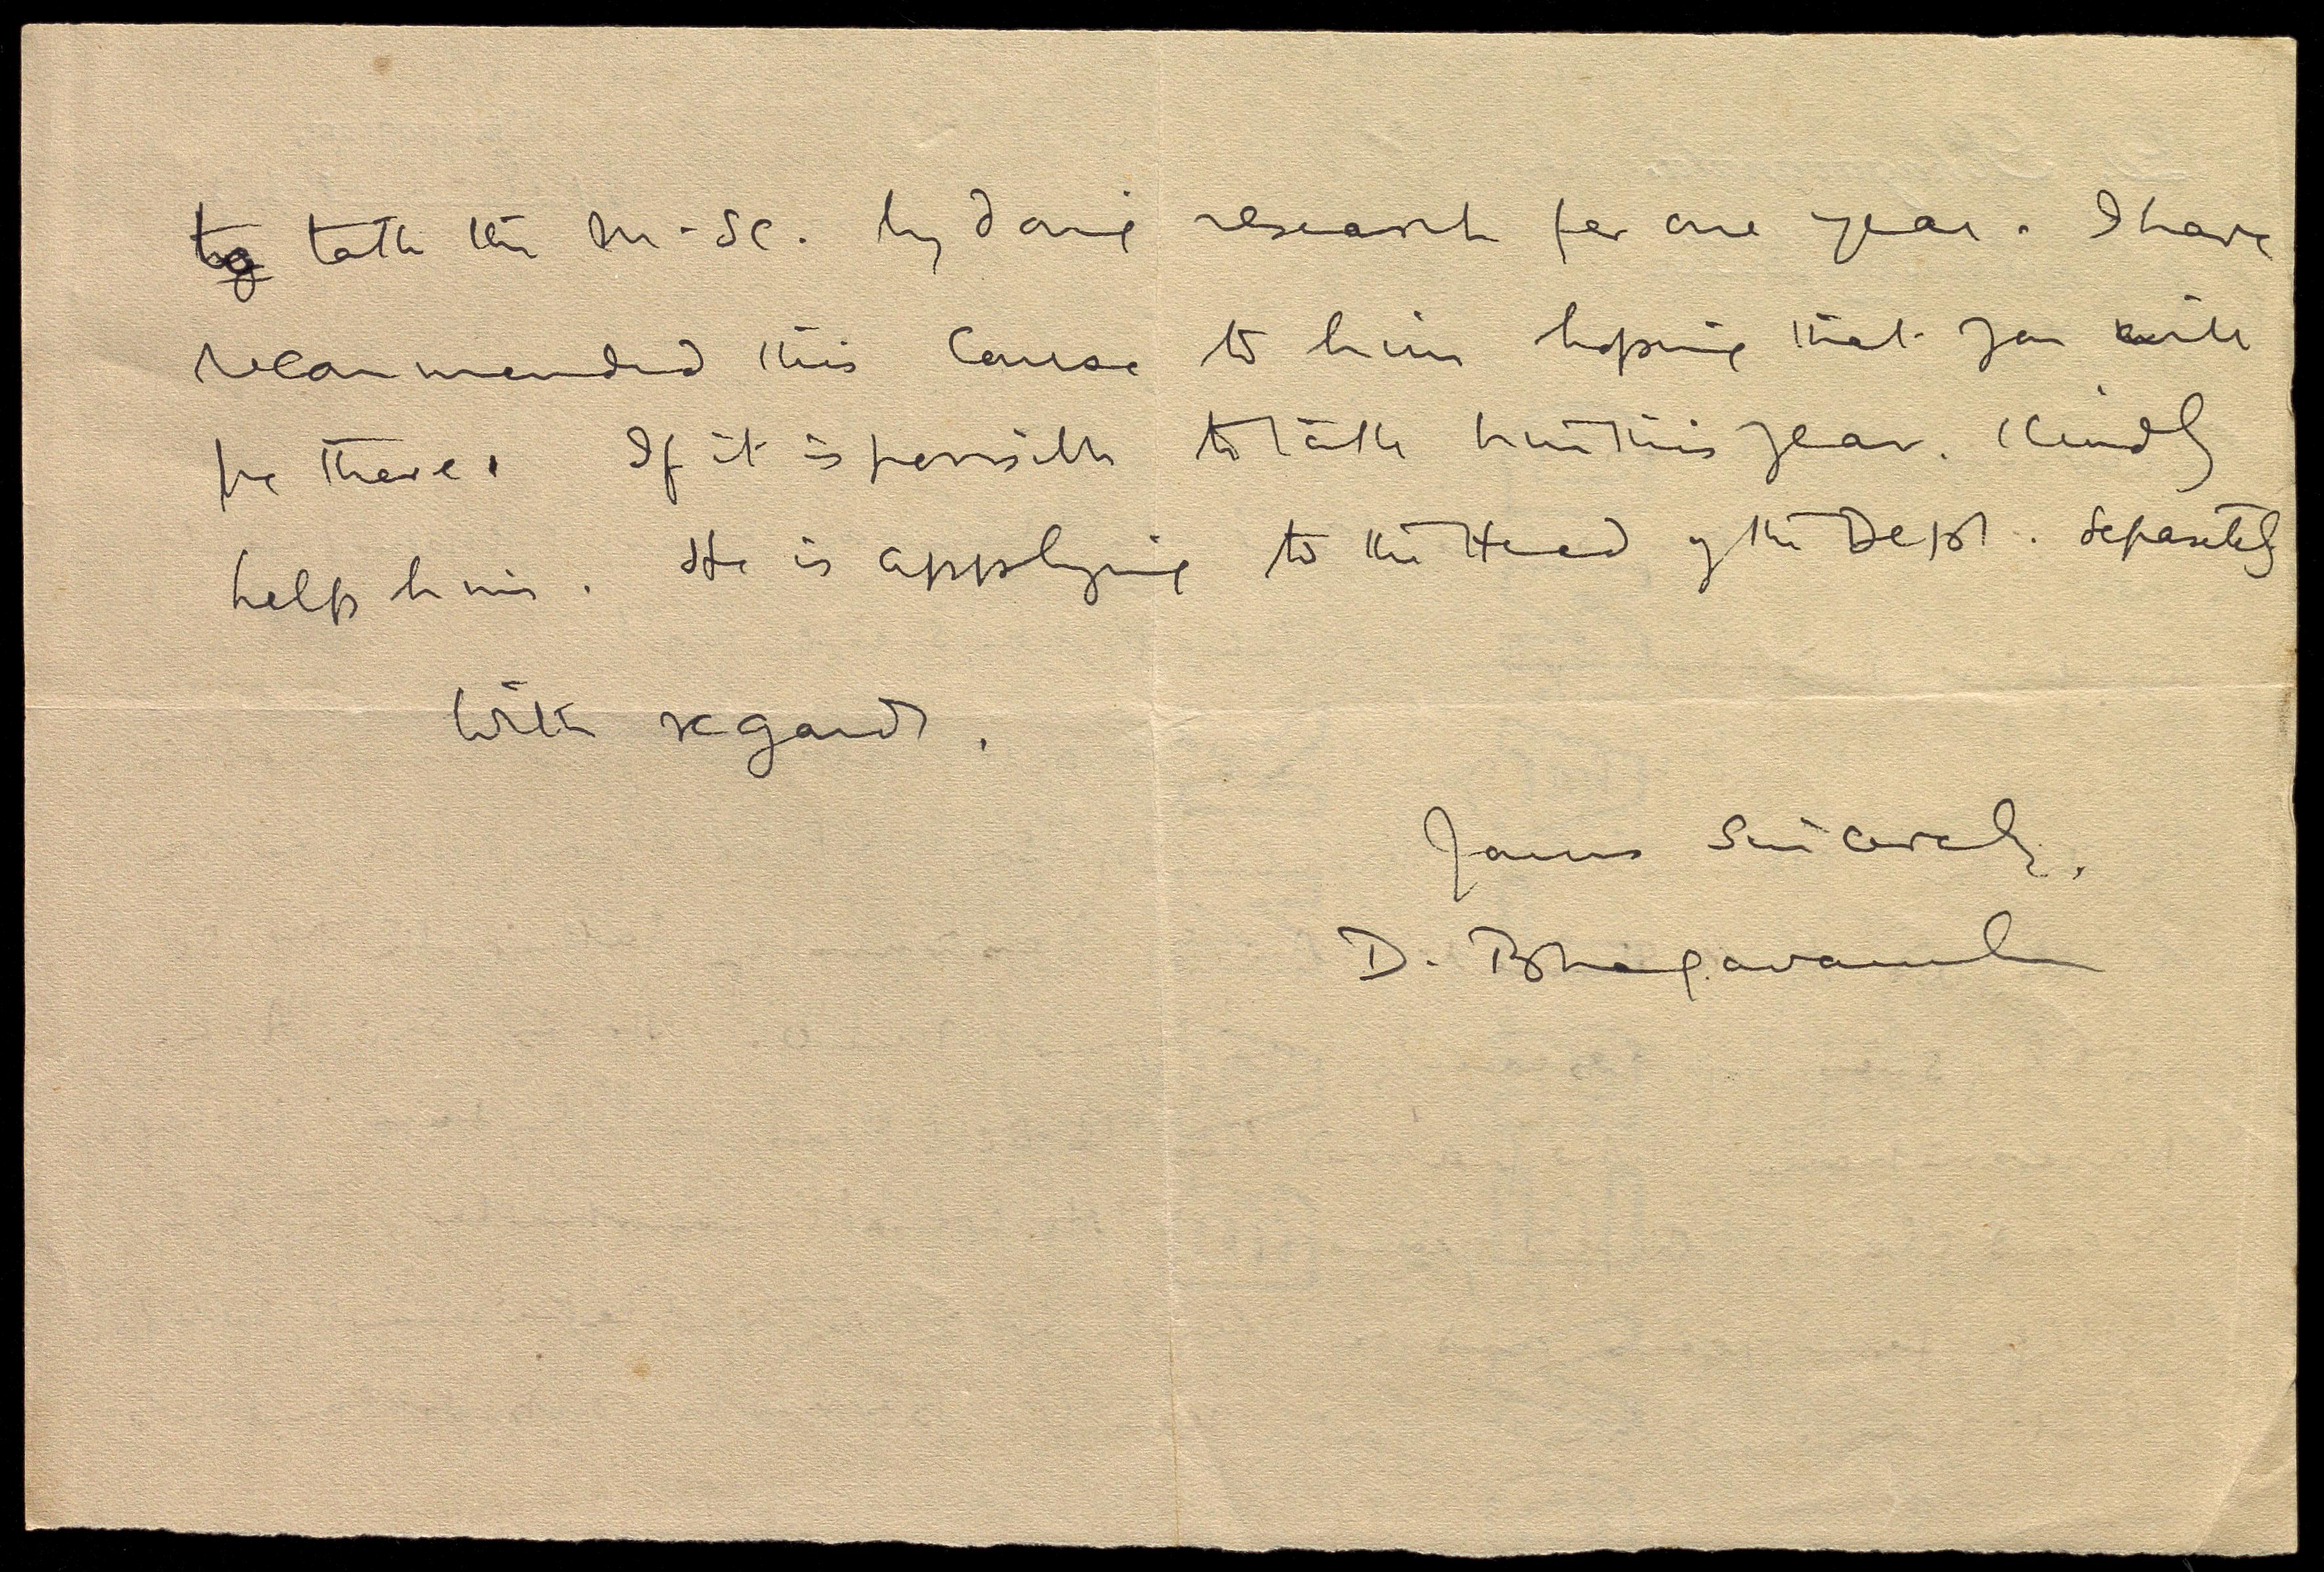 to take the M-Sc. by doing research for one year. I have
recommended this Course to him hoping that you will
be there. If it is possible to take him this year. Kindly
help him. He is applying to the Head of the Dept. separately
With regards.
Yours Sincerely,
D. Bhagavam